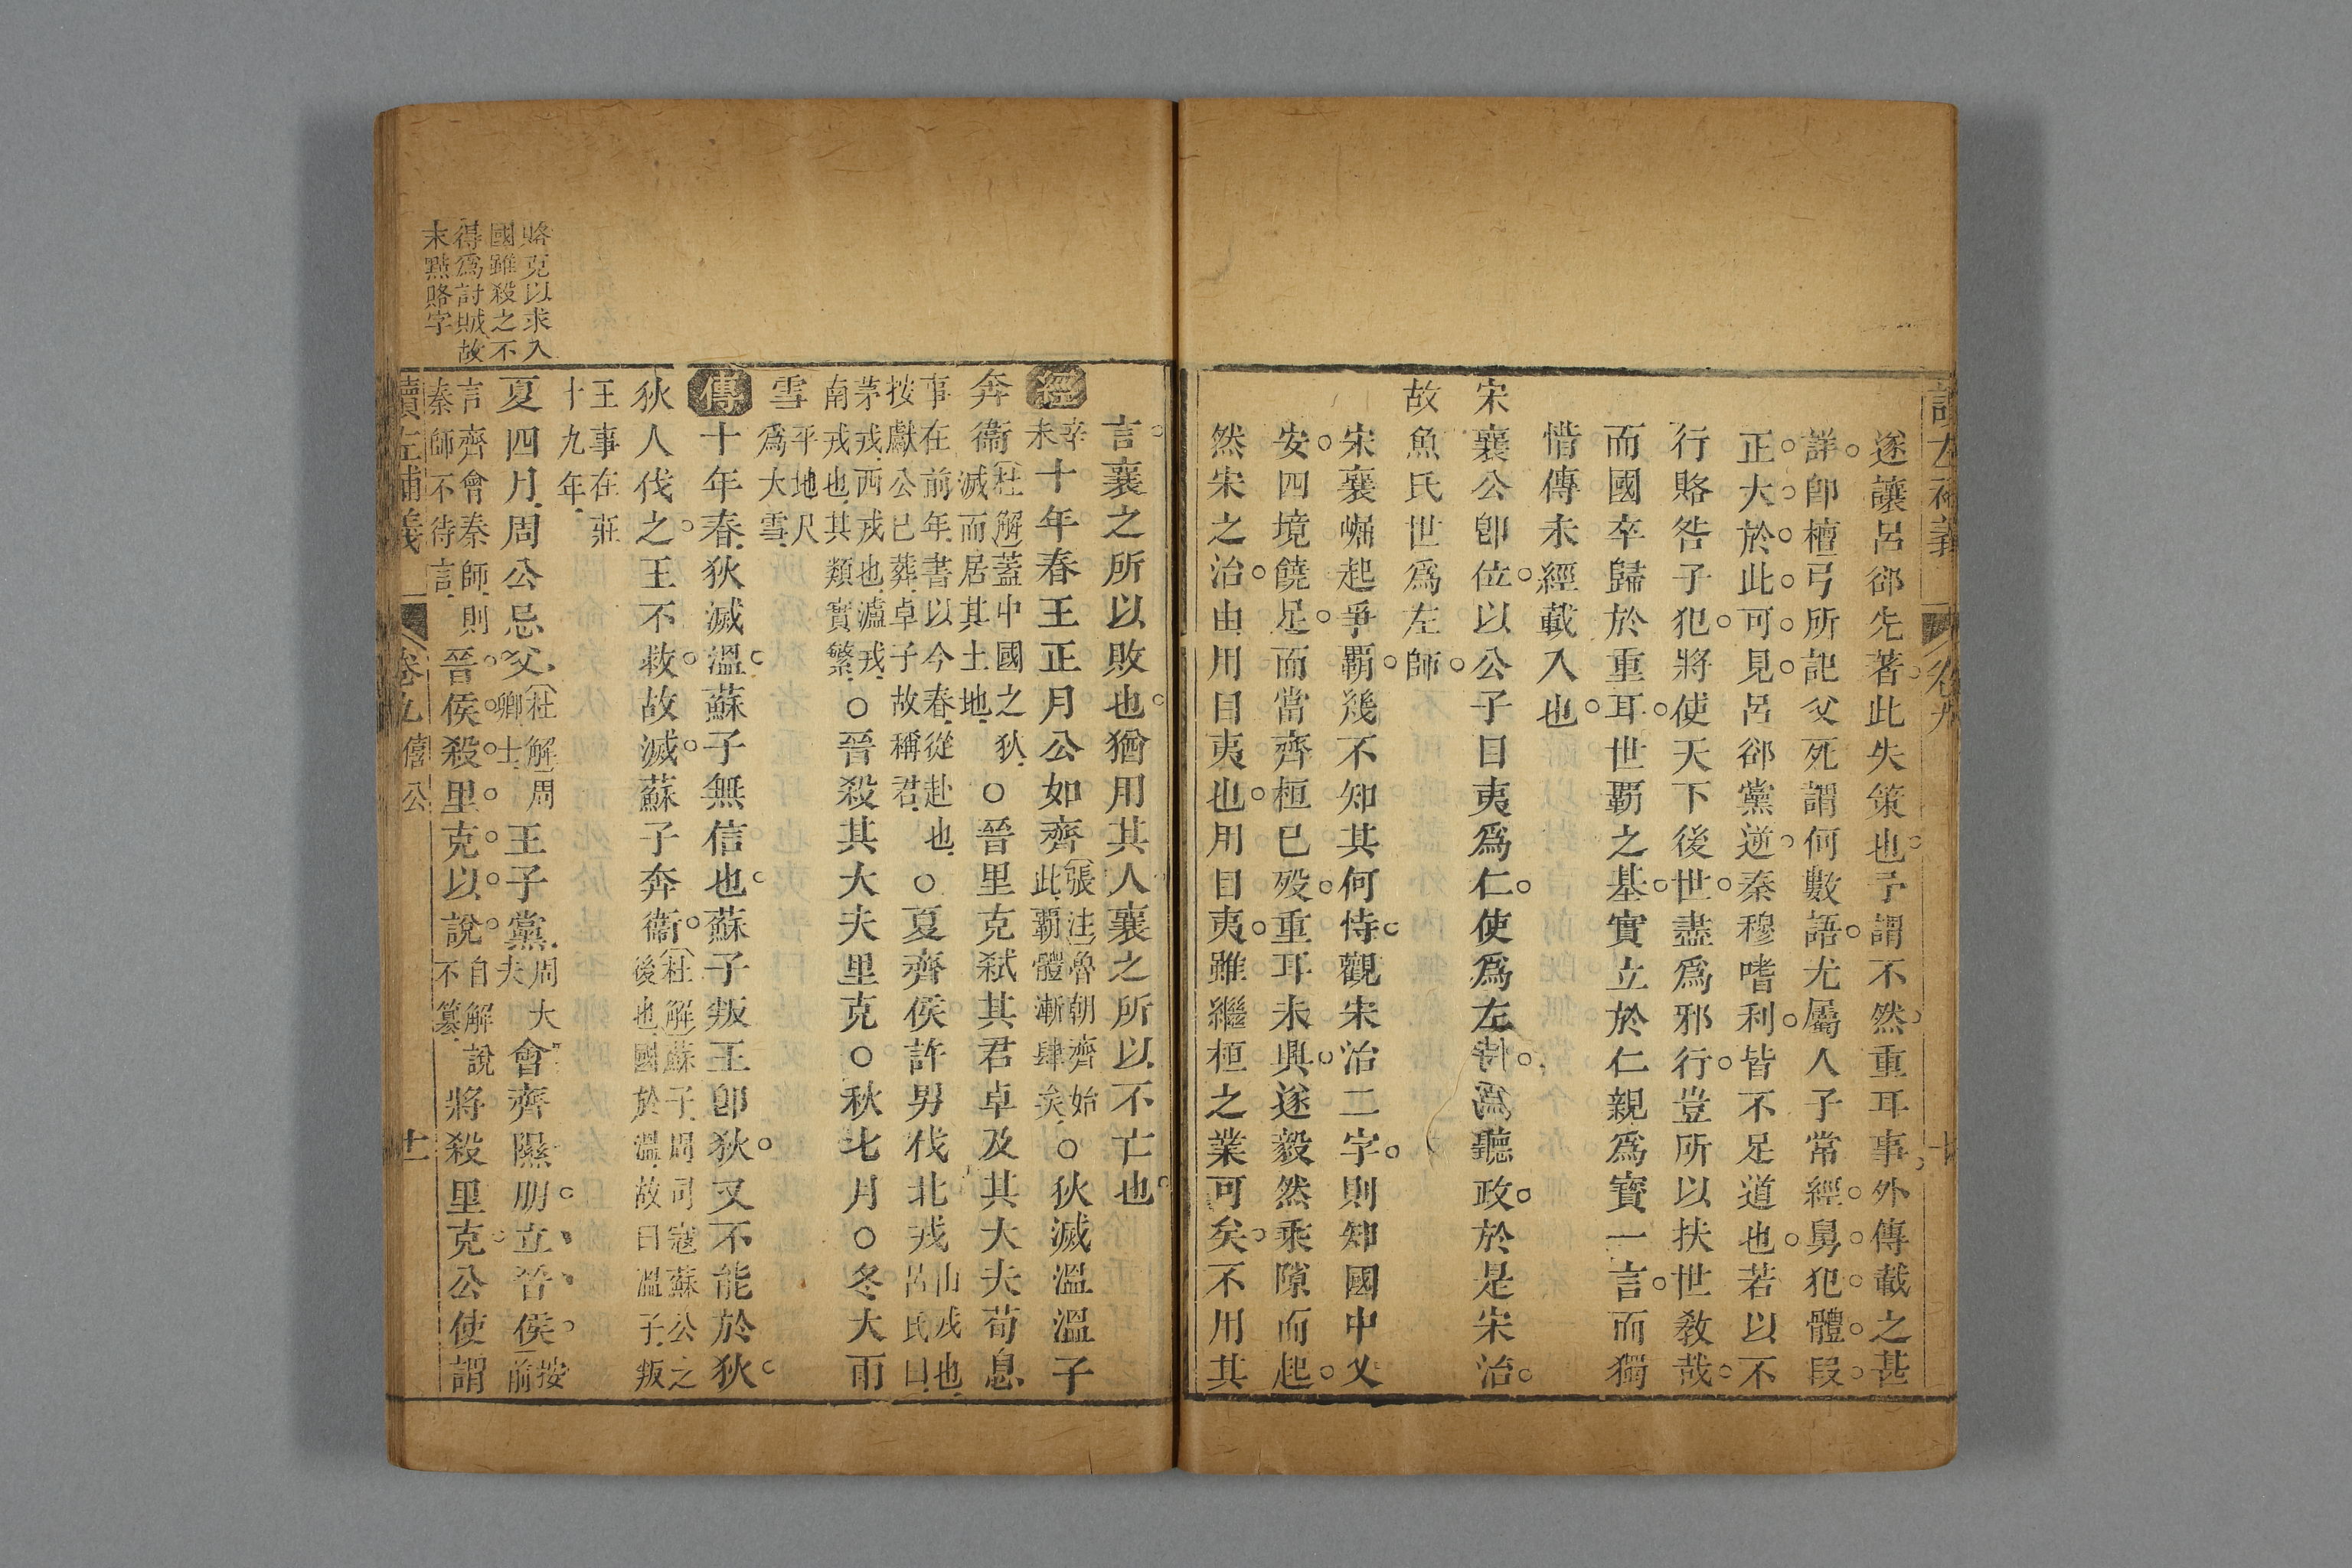 遂讓呂郤先著此失策也予謂不然重耳事外傳載之甚
詳卽檀弓所記父死謂何數語尤屬人子常經舅犯體段
正大於此可見呂郤黨逆秦穆嗜利皆不足道也若以不
行賂咎子犯將使天下後世盡爲邪行豈所以扶世敎哉
而國卒歸於重耳世覇之基實立於仁親爲寶一言而獨
惜傳未經載入也
宋襄公卽位以公子目夷爲仁使爲左師爲聽政於是宋治
故魚氏世爲左師
宋襄崛起爭覇幾不知其何恃觀宋治二字則知國中乂
安四境饒足而當齊桓已歿重耳未興遂毅然乘隙而起
然宋之治由用目夷也用目夷雖繼桓之業可矣不用其
讀左補義
卷九
十
言襄之所以敗也猶用其人襄之所以不亡也
經辛未十年春王正月公如齊張注魯朝齊始此覇體漸肆矣○狄滅溫溫子
奔衞杜解蓋中國之狄滅而居其土地○晉里克弑其君卓及其大夫荀息
事在前年書以今春從赴也按獻公已葬卓子故稱君○夏齊侯許男伐北戎山戎也呂氏曰
茅戎西戎也瀘戎南戎也其類實繁○晉殺其大夫里克○秋七月○冬大雨
雪平地尺爲大雪
傳十年春狄滅溫蘇子無信也蘇子叛王卽狄又不能於狄
狄人伐之王不救故滅蘇子奔衞杜解蘇子周司寇蘇公之後也國於溫故曰溫子叛
王事在莊十九年
夏四月周公忌父杜解周卿士王子黨周大夫會齊隰朋立晉侯按前
言齊會秦師則秦師不待言晉侯殺里克以說自解說不篡將殺里克公使謂
賂克以求入
國雖殺之不
得爲討賊故
末點賂字
讀左補義
卷九
僖公
十一